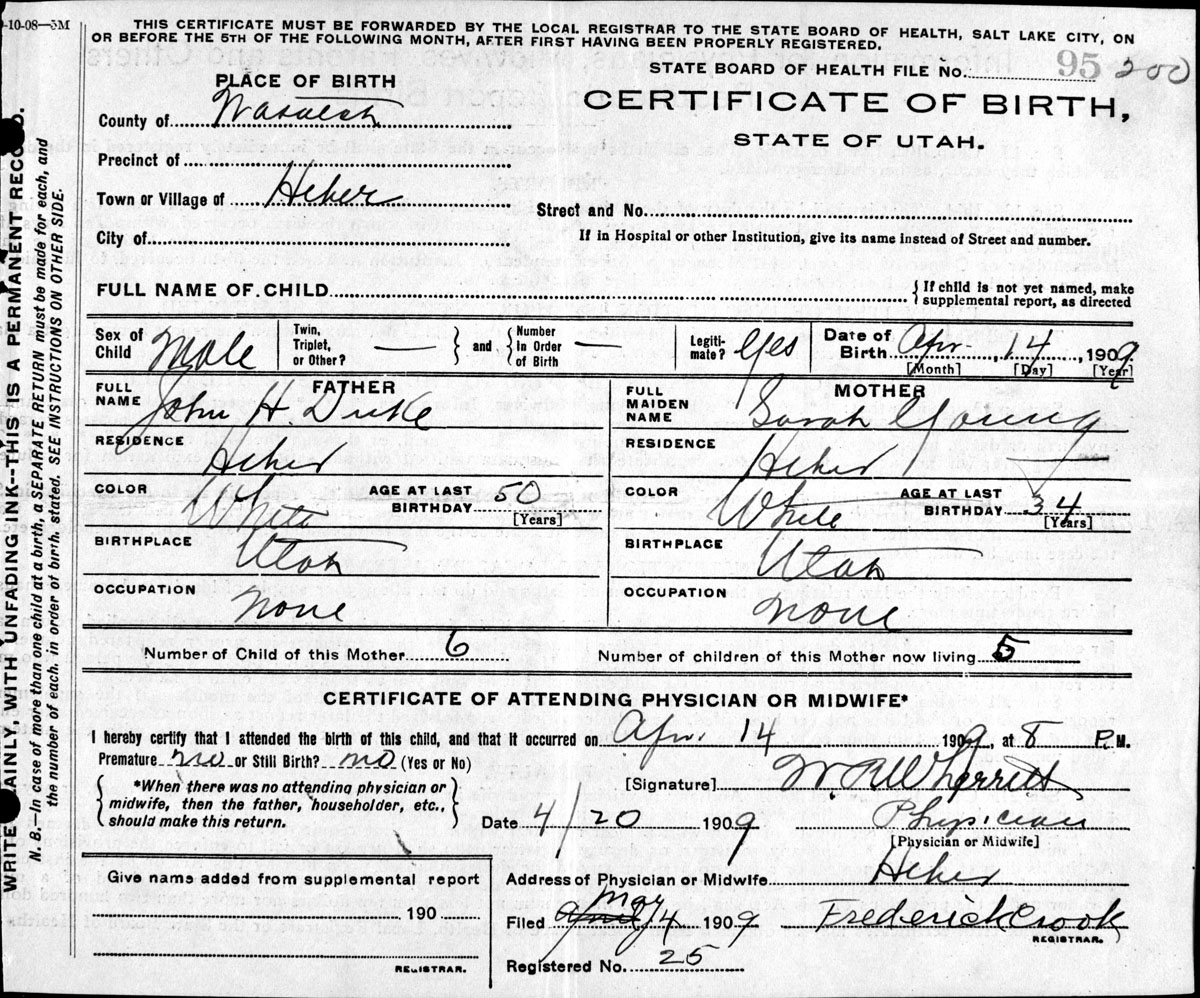 9-10-08—5M
THIS CERTIFICATE MUST BE FORWARDED BY THE LOCAL REGISTRAR TO THE STATE BOARD OF HEALTH, SALT LAKE CITY, ON
OR BEFORE THE 5TH OF THE FOLLOWING MONTH, AFTER FIRST HAVING BEEN PROPERLY REGISTERED.
STATE BOARD OF HEALTH FILE No. 95 200
PLACE OF BIRTH
CERTIFICATE OF BIRTH,
STATE OF UTAH.
County of Wasatch
Precinct of
Town or Village of Heber
Street and No.
City of
If in Hospital or other Institution, give its name instead of Street and number.
FULL NAME OF CHILD
{If child is not yet named, make
supplemental report, as directed
Sex of Child Male Twin, Triplet, or Other? — } and { Number In Order of Birth — Legiti-mate? Yes Date of Birth Apr. 14, 1909
[Month] [Day] [Year]
FATHER
FULL NAME John H. Duke
MOTHER
FULL MAIDEN NAME Sarah Young
RESIDENCE Heber
RESIDENCE Heber
COLOR White AGE AT LAST BIRTHDAY 50 [Years]
COLOR White AGE AT LAST BIRTHDAY 34 [Years]
BIRTHPLACE Utah
BIRTHPLACE Utah
OCCUPATION none
OCCUPATION none
Number of Child of this Mother 6
Number of children of this Mother now living 5
CERTIFICATE OF ATTENDING PHYSICIAN OR MIDWIFE*
I hereby certify that I attended the birth of this child, and that it occurred on Apr. 14 1909, at 8 P. M.
Premature no or Still Birth? no (Yes or No)
[Signature] W. R. Wherritt
{*When there was no attending physician or
midwife, then the father, householder, etc.,
should make this return.}
Date 4/20 1909
Physician
[Physician or Midwife]
Give name added from supplemental report
190
REGISTRAR.
Address of Physician or Midwife Heber
Filed April May 4 1909 Frederick Crook
REGISTRAR.
Registered No. 25
WRITE PLAINLY, WITH UNFADING INK--THIS IS A PERMANENT RECORD.
N. B.—In case of more than one child at a birth, a SEPARATE RETURN must be made for each, and
the number of each, in order of birth, stated. SEE INSTRUCTIONS ON OTHER SIDE.